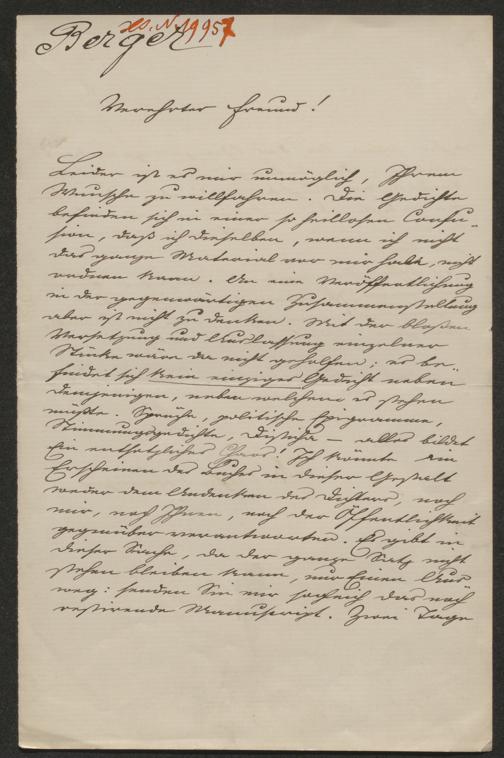 Berger
H.I.N. 19957
Verehrter Freund!
Leider ist es mir unmöglich, Ihrem
Wunsche zu willfahren. Die Gedichte
befinden sich in einer so heillosen Confu-
sion, daß ich dieselben, wenn ich nicht
das ganze Material vor mir habe, nicht
ordnen kann. An eine Veröffentlichung
in der gegenwärtigen Zusammenstellung
aber ist nicht zu denken. Mit der bloßen
Versetzung und Auslassung einzelner
Stücke wäre da nicht geholfen; es be-
findet sich kein einziges Gedicht neben
demjenigen, neben welchem es stehen
müßte. Sprüche, politische Epigramme,
Stimmungsgedichte, Disticha — alles bildet
Ein entsetzliches Chaos! Ich könnte ein
Erscheinen des Buches in dieser Gestalt
weder dem Andenken des Dichters, noch
mir, noch Ihnen, noch der Öffentlichkeit
gegenüber verantworten. Es gibt in
dieser Sache, da der ganze Satz nicht
stehen bleiben kann, nur Einen Aus
weg: senden Sie mir sogleich das noch
restirende Manuscript. Zwei Tage